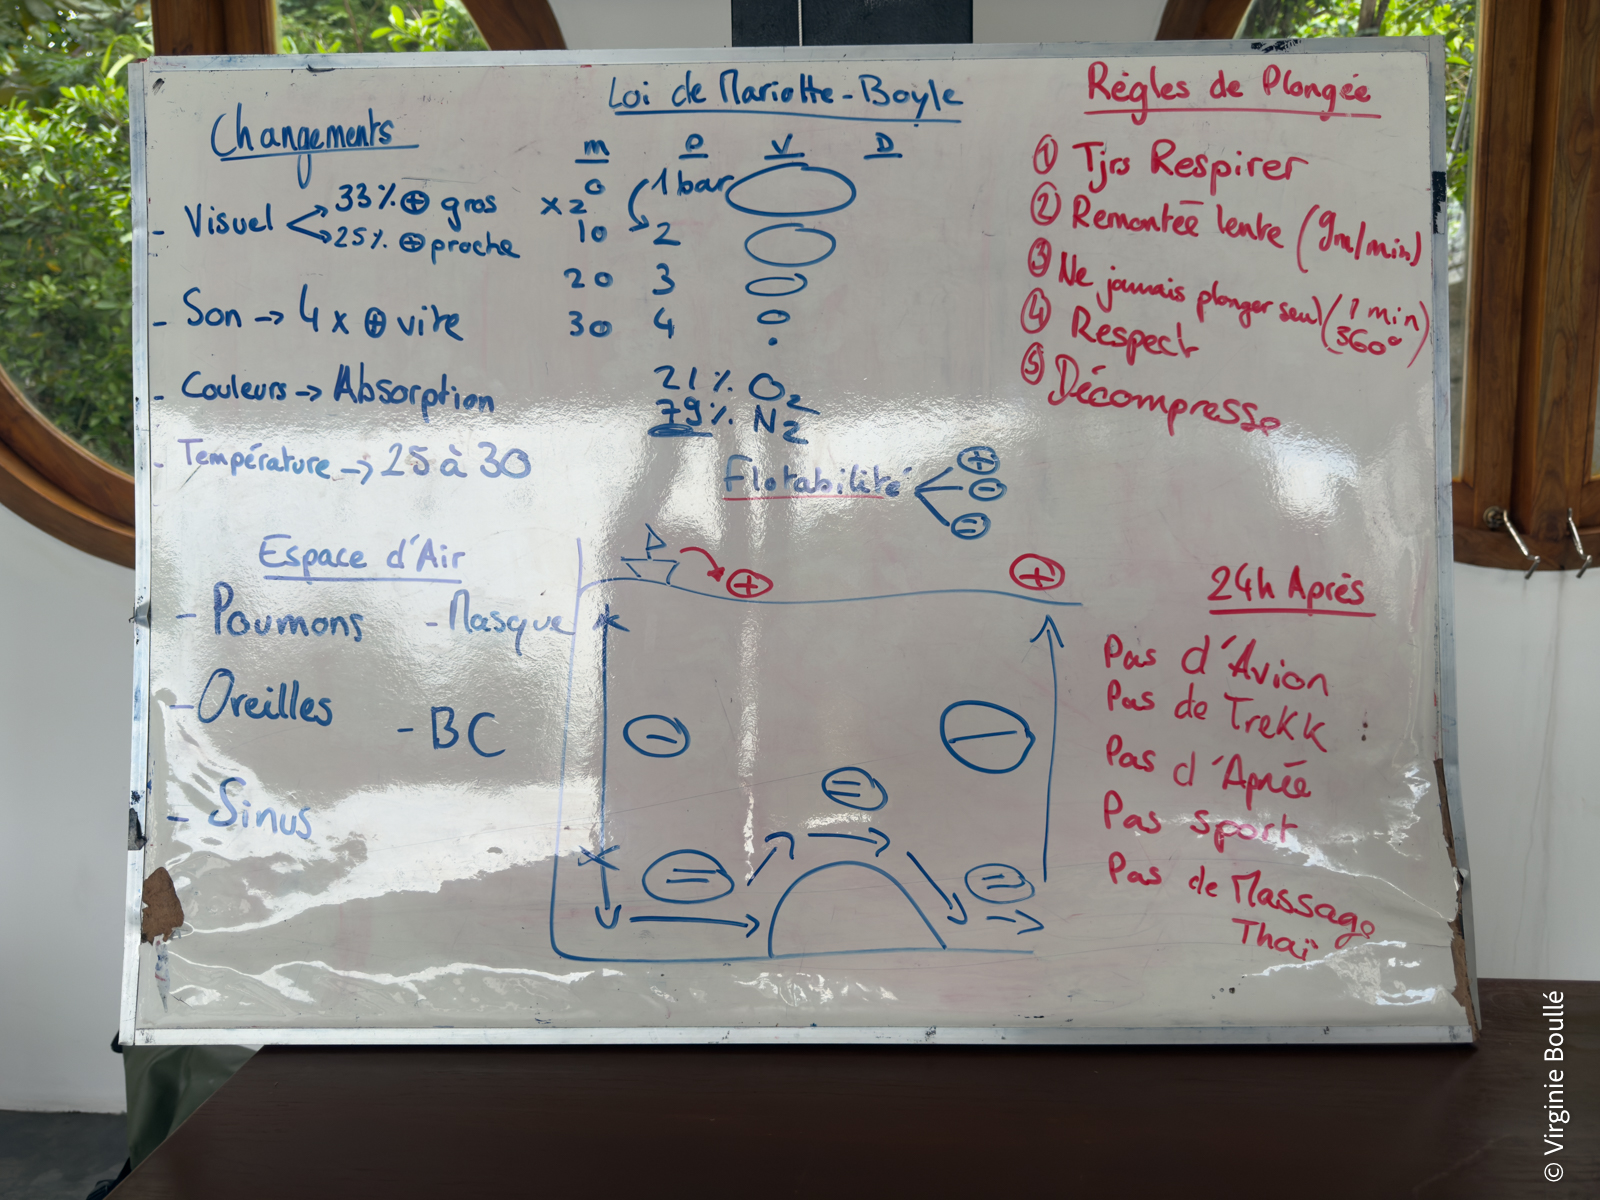 Changements
- Visuel
33% ⊕ gros
25% ⊕ proche
- Son → 4 x ⊕ vite
- Couleurs → Absorption
- Température → 25 à 30
Espace d'Air
- Poumons - Masque
- Oreilles
- BC
- Sinus
Loi de Mariotte-Boyle
m P V D
0 1 bar
x2
10 2
20 3
30 4
21% O2
79% N2
Flotabilité
+
-
=
+ +
- -
=
= =
Règles de Plongée
① Tjrs Respirer
② Remontée lente (9m/min)
③ Ne jamais plonger seul (1 min
360°)
④ Respect
⑤ Décompresse
24h Après
Pas d'Avion
Pas de Trekk
Pas d'Apnée
Pas sport
Pas de Massage
Thaï
© Virginie Boullé